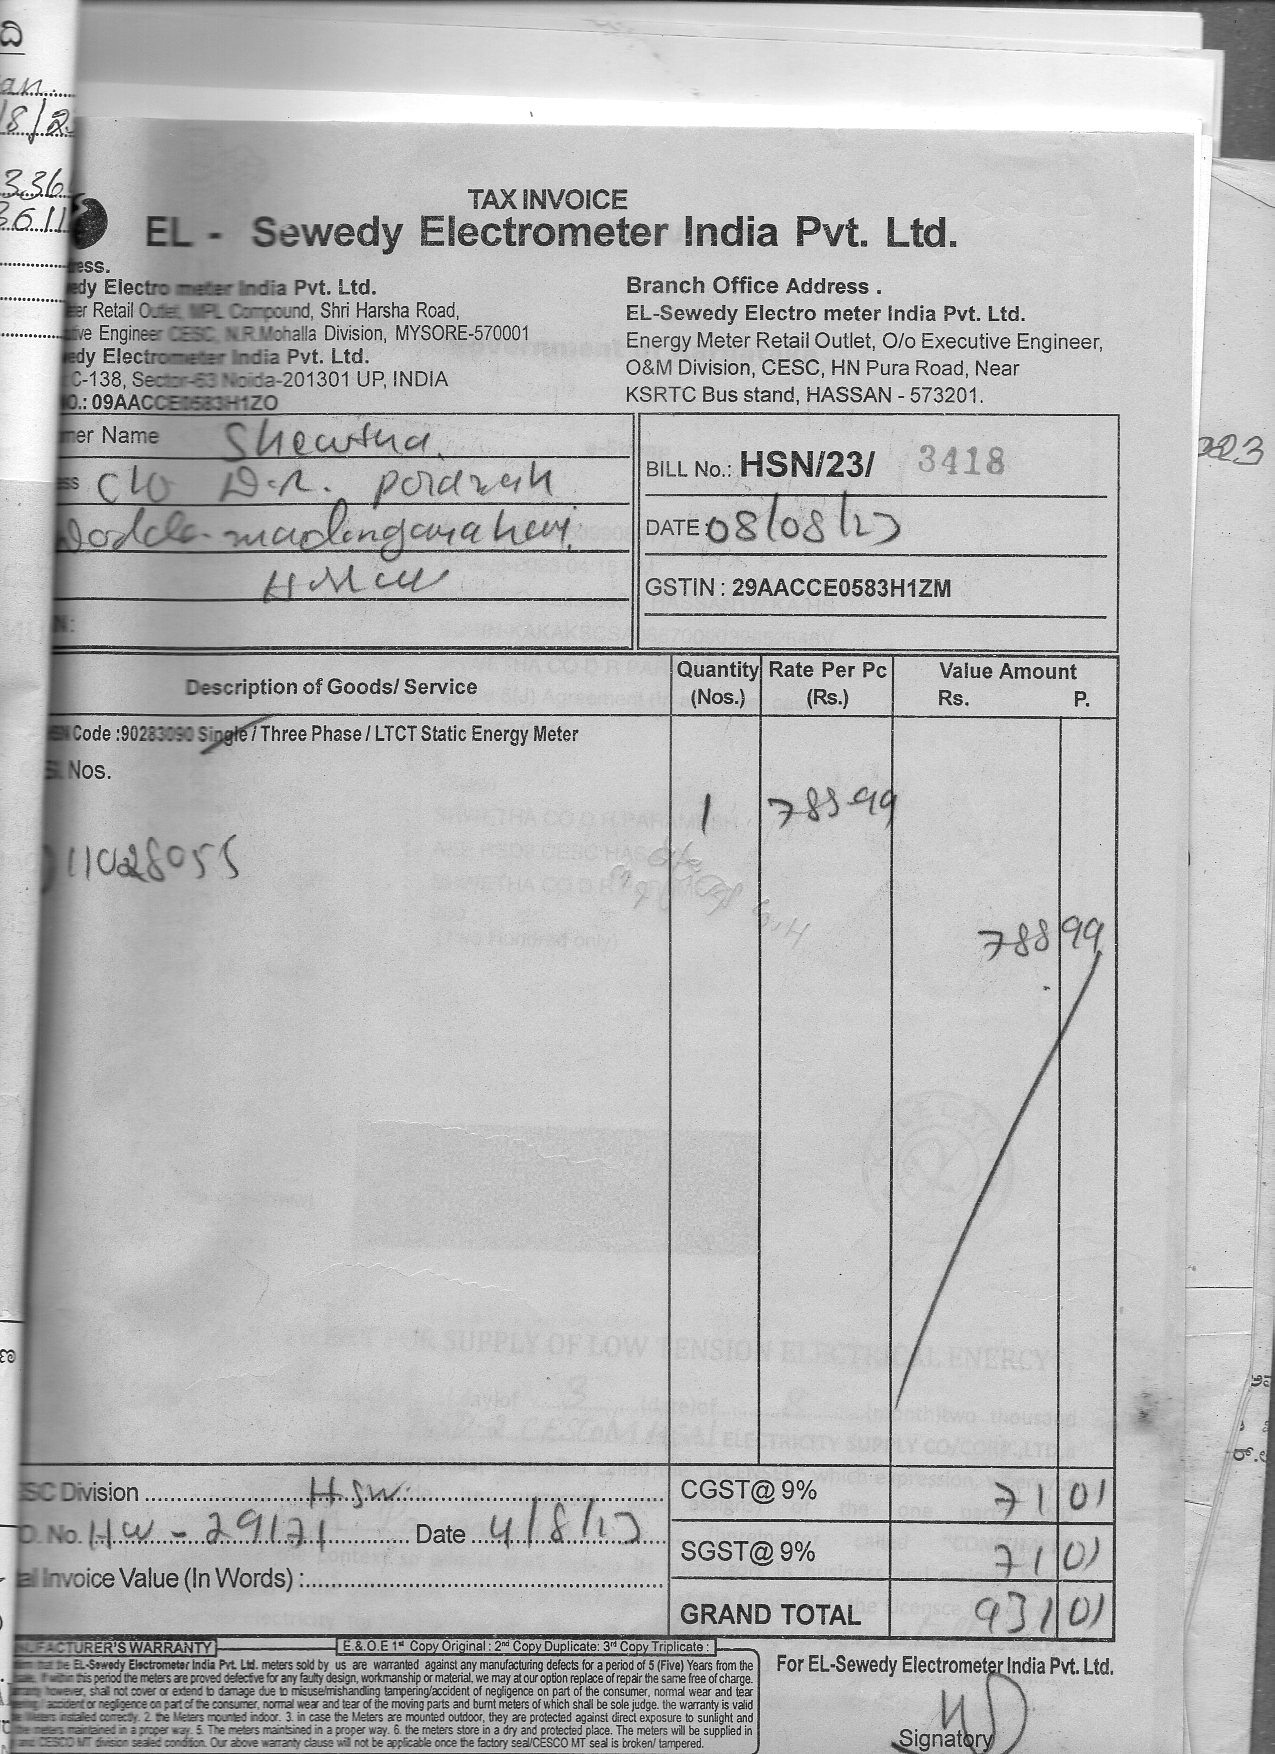 TAX INVOICE
EL - Sewedy Electrometer India Pvt. Ltd.
ess.
edy Electro meter India Pvt. Ltd.
er Retail Outlet, MPL Compound, Shri Harsha Road,
ive Engineer CESC, N.R.Mohalla Division, MYSORE-570001
edy Electrometer India Pvt. Ltd.
C-138, Sector-63 Noida-201301 UP, INDIA
O.: 09AACCE0583H1ZO
Branch Office Address .
EL-Sewedy Electro meter India Pvt. Ltd.
Energy Meter Retail Outlet, O/o Executive Engineer,
O&M Division, CESC, HN Pura Road, Near
KSRTC Bus stand, HASSAN - 573201.
mer Name Shewtha
ess C/o D.R.
N:
BILL No.: HSN/23/ 3418
DATE 08/08/23
GSTIN : 29AACCE0583H1ZM
Description of Goods/ Service Quantity (Nos.) Rate Per Pc (Rs.) Value Amount Rs. P.
Code :90283090 Single / Three Phase / LTCT Static Energy Meter
Sl. Nos.
1 788 99
11028055
788 99
SC Division H.S.W. CGST@ 9% 71 01
O. No. HW - 29171 Date 4/8/23
SGST@ 9% 71 01
al Invoice Value (In Words) :
GRAND TOTAL 931 01
UFACTURER'S WARRANTY E.& O.E 1st Copy Original : 2nd Copy Duplicate: 3rd Copy Triplicate :
the EL-Sewedy Electrometer India Pvt. Ltd. meters sold by us are warranted against any manufacturing defects for a period of 5 (Five) Years from the
within this period the meters are proved defective for any faulty design, workmanship or material, we may at our option replace of repair the same free of charge.
however, shall not cover or extend to damage due to misuse/mishandling tampering/accident of negligence on part of the consumer, normal wear and tear
accident or negligence on part of the consumer, normal wear and tear of the moving parts and burnt meters of which shall be sole judge. the warranty is valid
Meters installed correctly. 2. the Meters mounted indoor. 3. in case the Meters are mounted outdoor, they are protected against direct exposure to sunlight and
the meters maintained in a proper way. 5. The meters maintsined in a proper way. 6. the meters store in a dry and protected place. The meters will be supplied in
and CESCO MT division sealed condition. Our above warranty clause will not be applicable once the factory seal/CESCO MT seal is broken/ tampered.
For EL-Sewedy Electrometer India Pvt. Ltd.
Signatory